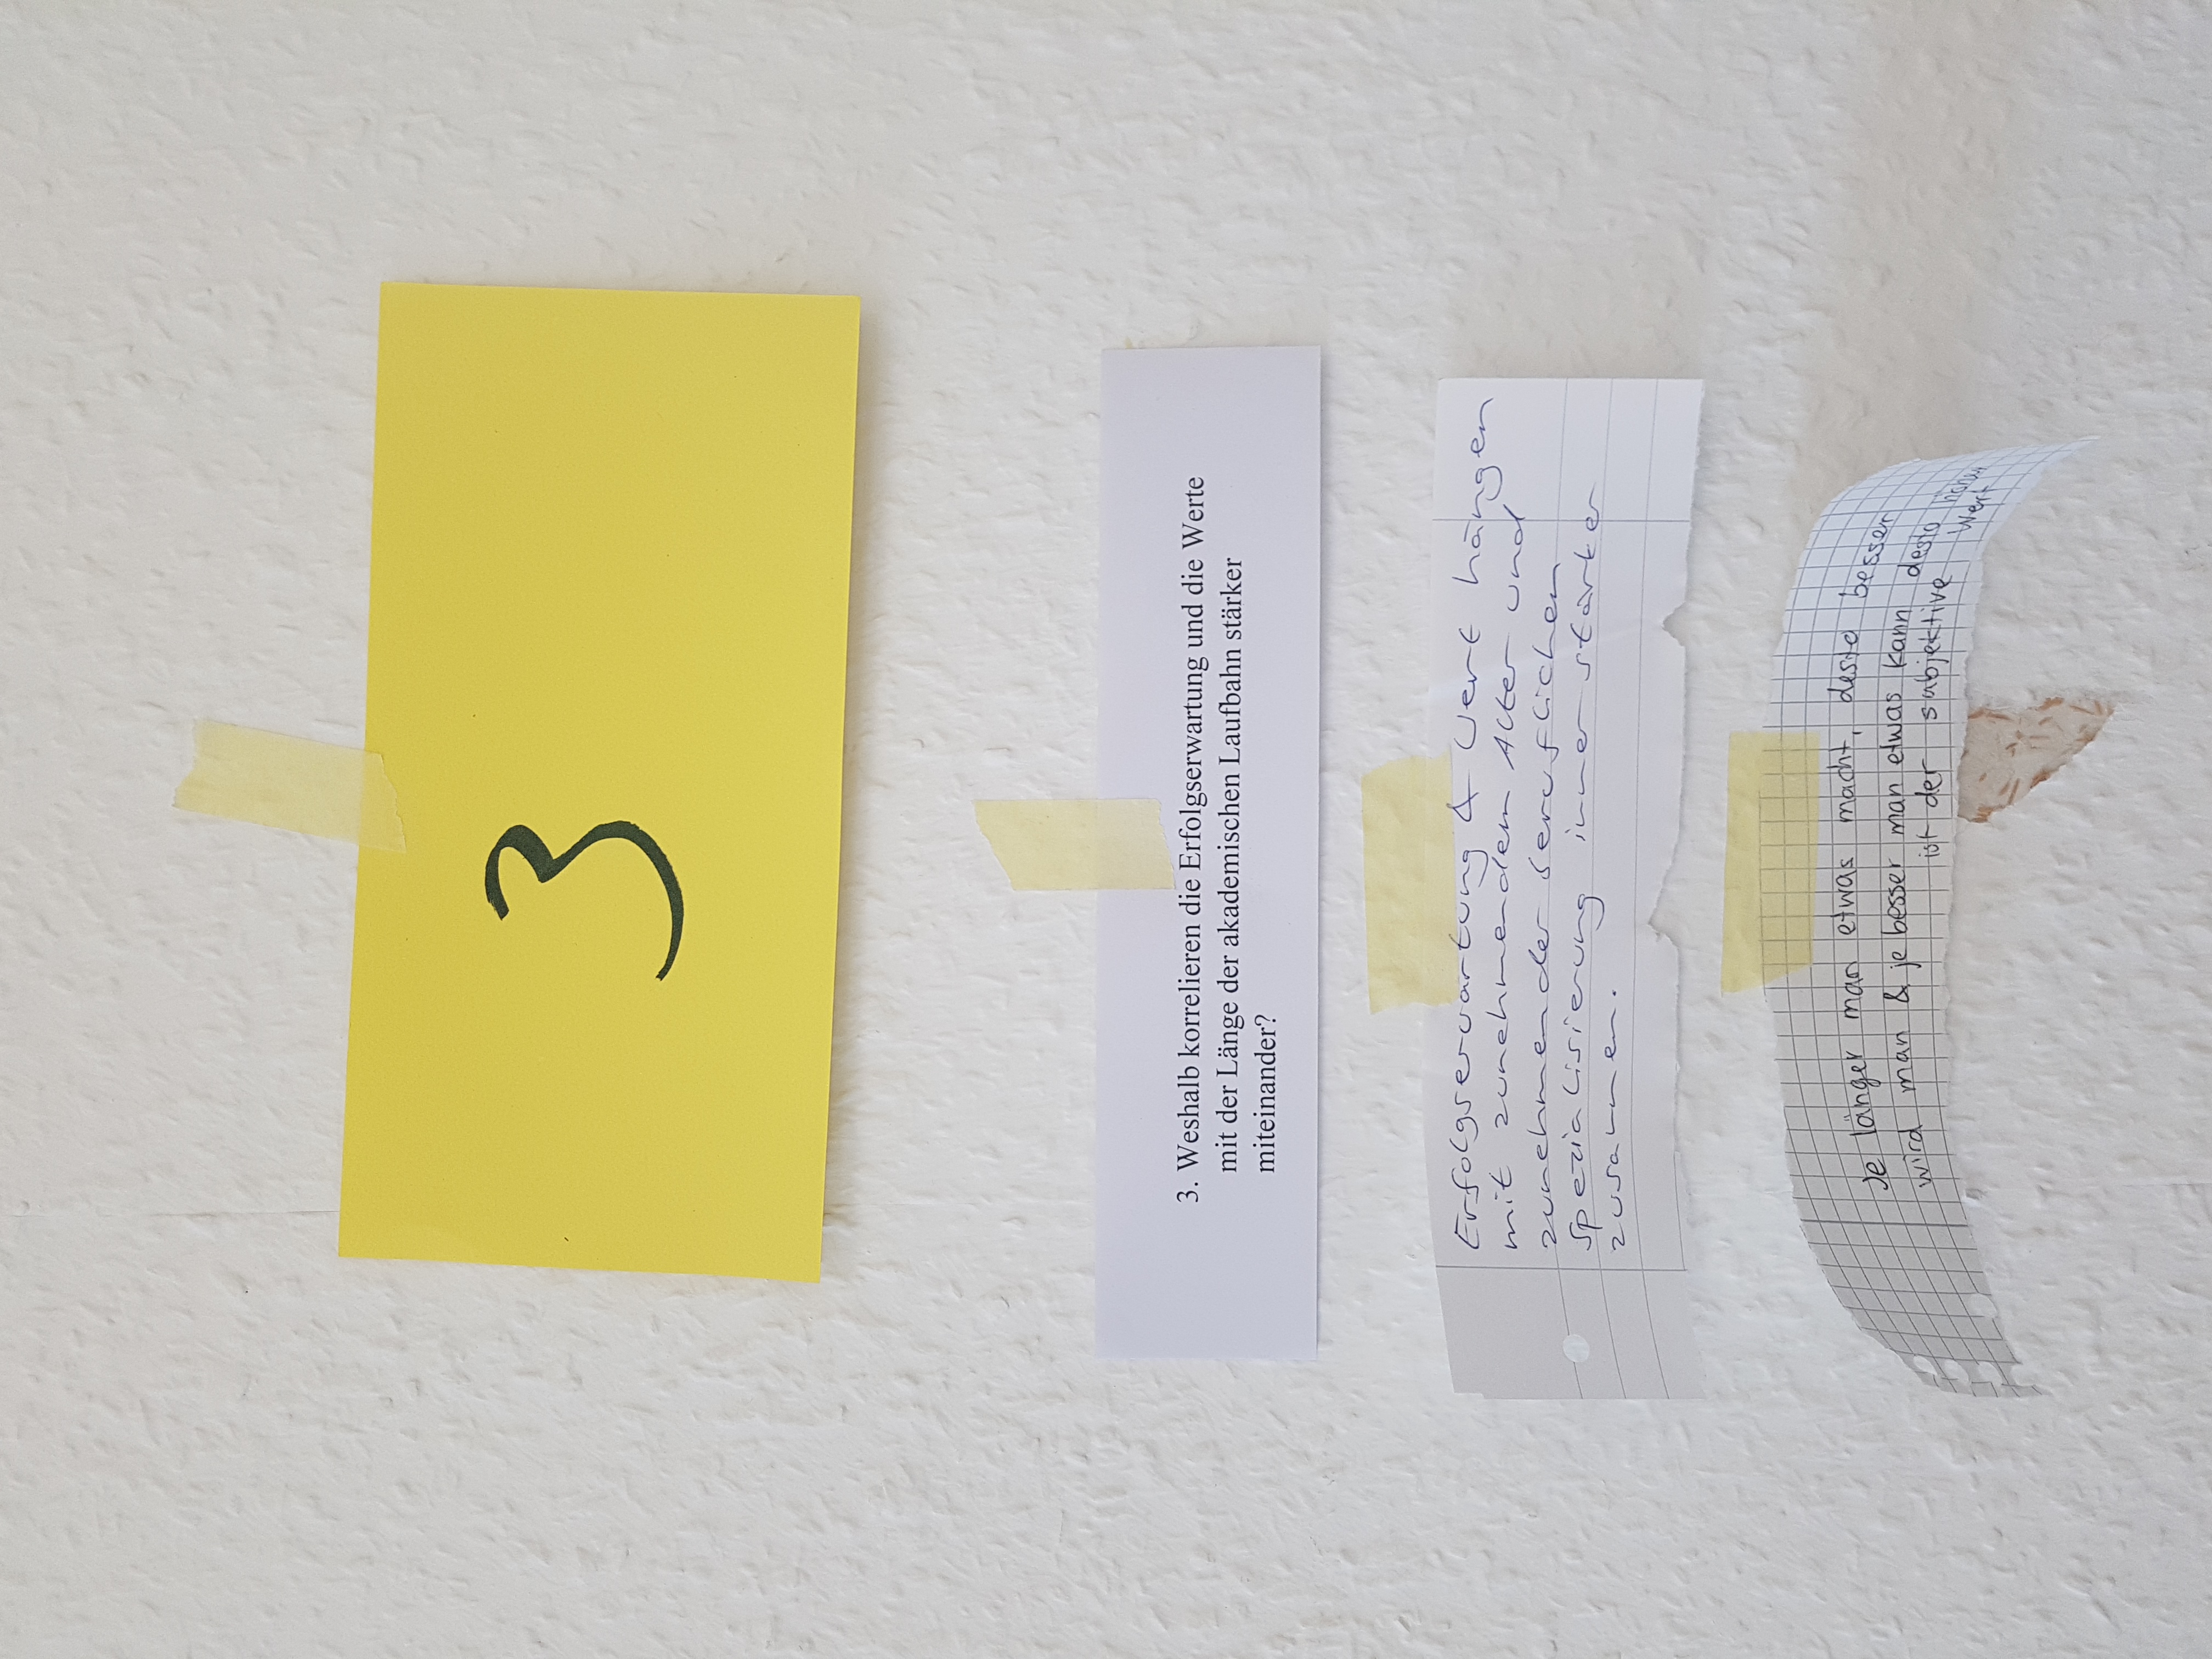 3
3. Weshalb korrelieren die Erfolgserwartung und die Werte
mit der Länge der akademischen Laufbahn stärker
miteinander?
Erfolgserwartung & Wert hängen
mit zunehmendem Alter und
zunehmender beruflichen
Spezialisierung immer stärker
zusammen.
Je länger man etwas macht, desto besser
wird man & je besser man etwas kann desto höher
ist der subjektive Wert